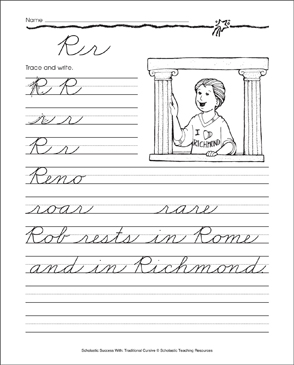 Name
Rr
Trace and write.
R R
r r
R r
I ♡
RICHMOND
Reno
roar rare
Rob rests in Rome
and in Richmond.
Scholastic Success With Traditional Cursive © Scholastic Teaching Resources